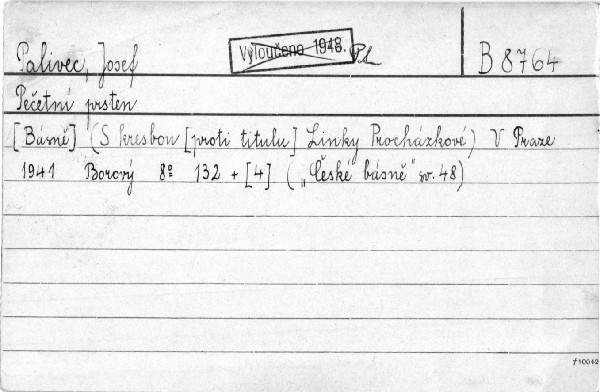 Palivec, Josef
Vyloučeno 1948.
B 8764
Pečetní prsten
[Básně] (S kresbou [proti titulu] Linky Procházkové) V Praze
1941 Borový 8º 132 + [4] („České básně“ sv. 48)
†10042